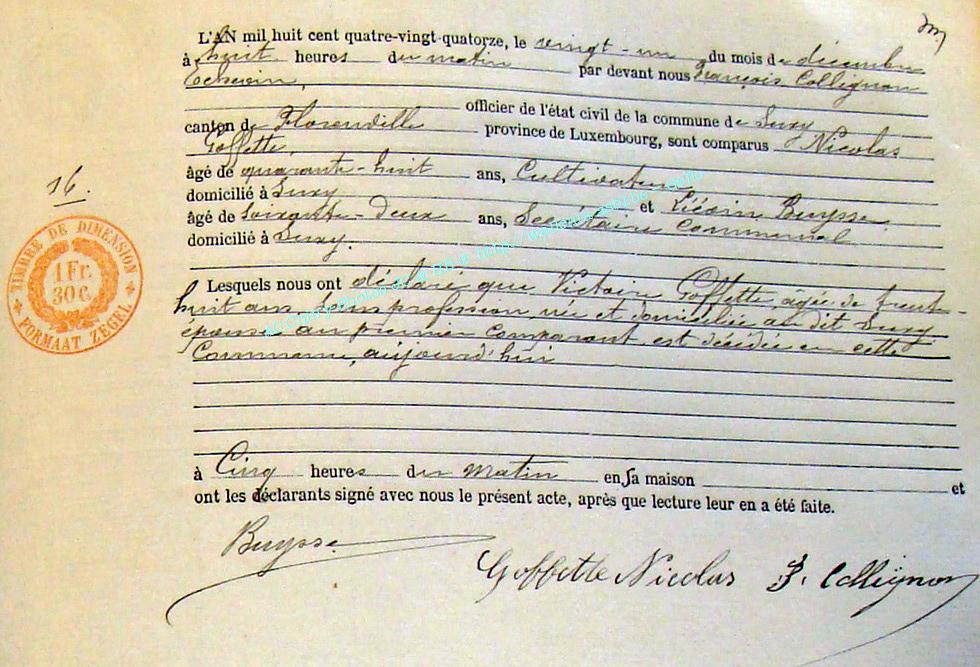 L'AN mil huit cent quatre-vingt-quatorze, le vingt-un du mois de décembre
à huit heures du matin par devant nous François Collignon
Echevin,
officier de l'état civil de la commune de Suxy
canton de Florenville province de Luxembourg, sont comparus Nicolas
Goffette,
âgé de quarante-huit ans, Cultivateur
domicilié à Suxy et Buysse
âgé de Soixante-Deux ans, Secrétaire Communal
domicilié à Suxy.
Lesquels nous ont déclaré que Victoire Goffette, âgée de trente-
huit ans, sans profession, née et domiciliée au dit Suxy
épouse au premier comparant est décédée en cette
Commune, aujourd'hui
à Cinq heures du matin en sa maison et
ont les déclarants signé avec nous le présent acte, après que lecture leur en a été faite.
Buysse
Goffette Nicolas F. Collignon
16.
TIMBRE DE DIMENSION
1 Fr.
30 C.
FORMAAT ZEGEL